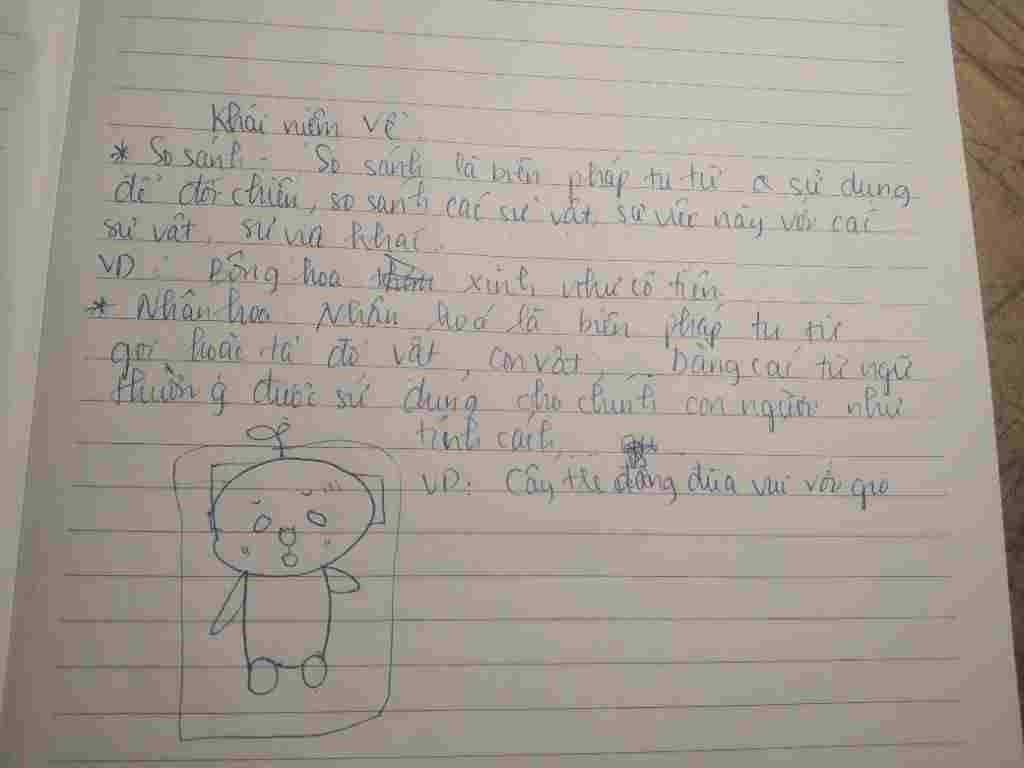 Khái niệm về
* So sánh: So sánh là biện pháp tu từ sử dụng
để đối chiếu, so sánh các sự vật, sự việc này với các
sự vật, sự việc khác.
VD: Bông hoa xinh như cô tiên
* Nhân hoá Nhân hoá là biện pháp tu từ
gọi hoặc tả đồ vật, con vật, ... bằng các từ ngữ
thường được sử dụng cho chính con người như
tính cách, ...
VD: Cây tre đang đùa vui với gió